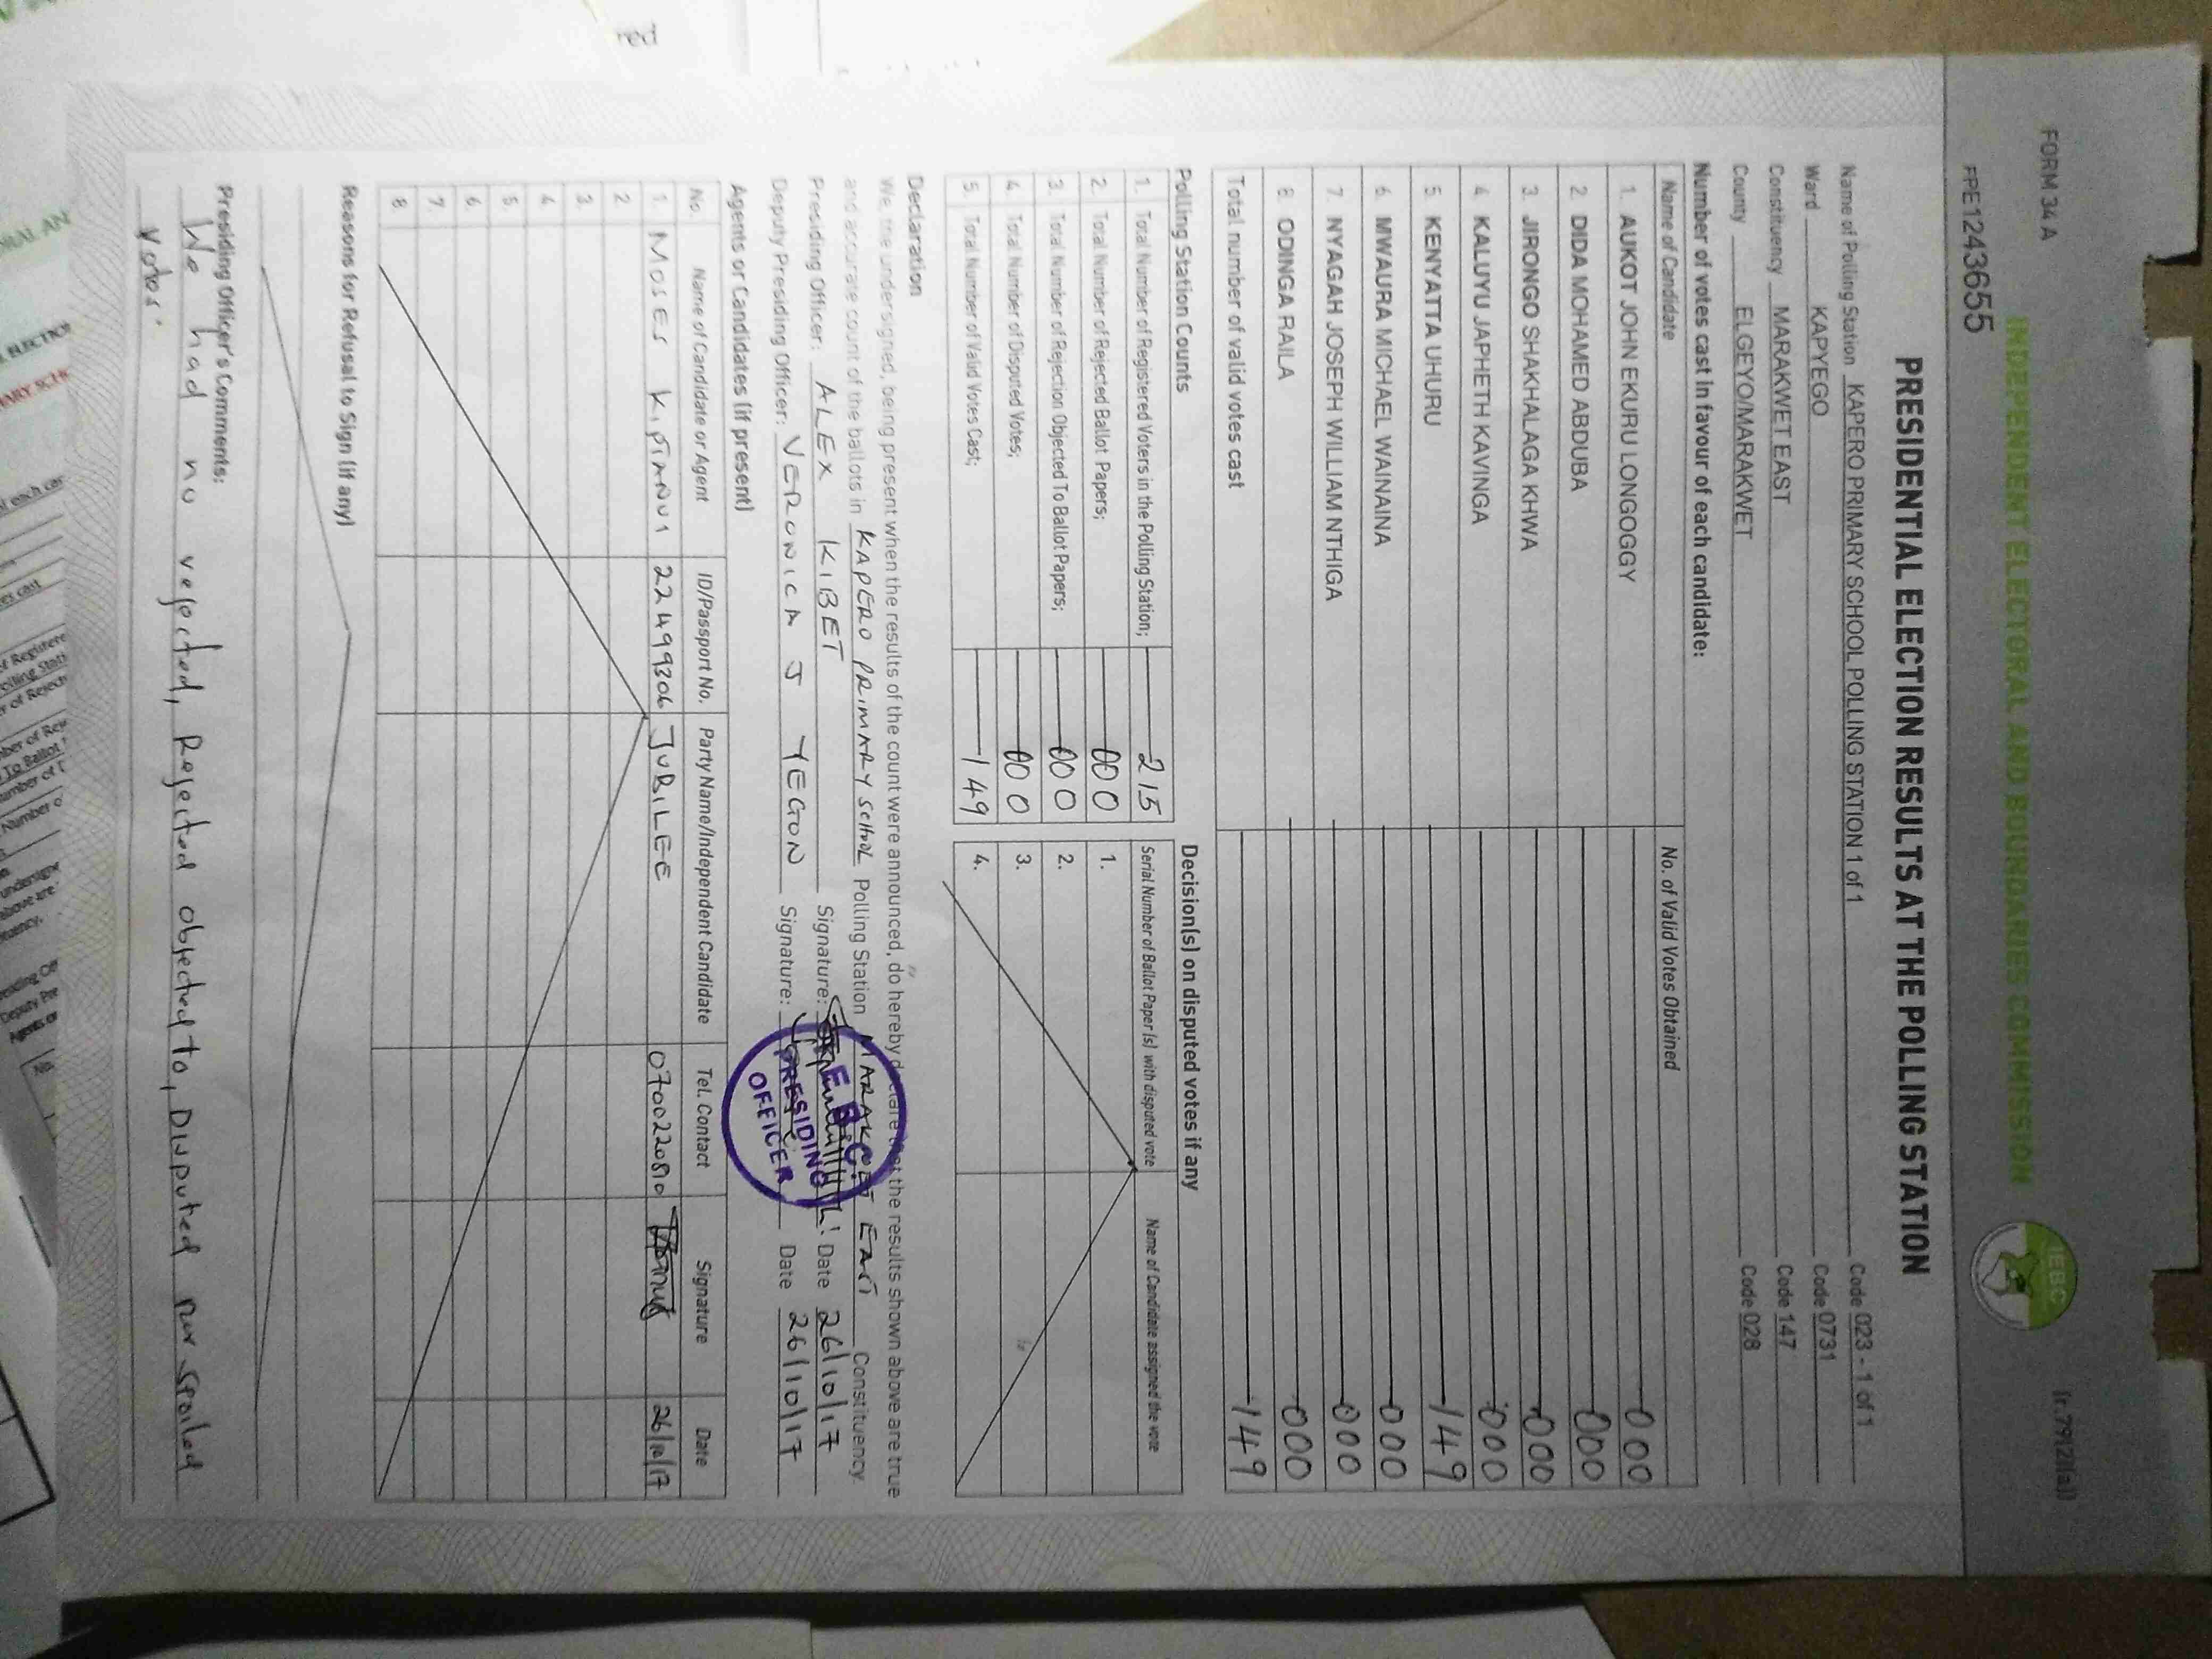 FORM 34 A
(r.79(2)(a))
INDEPENDENT ELECTORAL AND BOUNDARIES COMMISSION
IEBC
FPE1243655
PRESIDENTIAL ELECTION RESULTS AT THE POLLING STATION
Name of Polling Station KAPERO PRIMARY SCHOOL POLLING STATION 1 of 1 Code 023 - 1 of 1
Ward KAPYEGO Code 0731
Constituency MARAKWET EAST Code 147
County ELGEYO/MARAKWET Code 028
Number of votes cast in favour of each candidate:
Name of Candidate No. of Valid Votes Obtained
1. AUKOT JOHN EKURU LONGOGGY 000
2. DIDA MOHAMED ABDUBA 000
3. JIRONGO SHAKHALAGA KHWA 000
4. KALUYU JAPHETH KAVINGA 000
5. KENYATTA UHURU 149
6. MWAURA MICHAEL WAINAINA 000
7. NYAGAH JOSEPH WILLIAM NTHIGA 000
8. ODINGA RAILA 000
Total number of valid votes cast 149
Polling Station Counts
1. Total Number of Registered Voters in the Polling Station; 215
2. Total Number of Rejected Ballot Papers; 000
3. Total Number of Rejection Objected To Ballot Papers; 000
4. Total Number of Disputed Votes; 000
5. Total Number of Valid Votes Cast; 149
Decision(s) on disputed votes if any
Serial Number of Ballot Paper (s) with disputed vote Name of Candidate assigned the vote
1.
2.
3.
4.
Declaration
We, the undersigned, being present when the results of the count were announced, do hereby declare that the results shown above are true
and accurate count of the ballots in KAPERO PRIMARY SCHOOL Polling Station MARAKWET EAST Constituency.
Presiding Officer: ALEX KIBET Signature: Date 26/10/17
Deputy Presiding Officer: VERONICA J YEGON Signature: Date 26/10/17
PRESIDING
OFFICER
Agents or Candidates (if present)
No. Name of Candidate or Agent ID/Passport No. Party Name/Independent Candidate Tel. Contact Signature Date
1. MOSES KIPTANUI 22499306 JUBILEE 0700220810 26/10/17
2.
3.
4.
5.
6.
7.
8.
Reasons for Refusal to Sign (if any)
Presiding Officer's Comments:
We had no rejected, Rejected objected to, Disputed nor spoiled
votes.